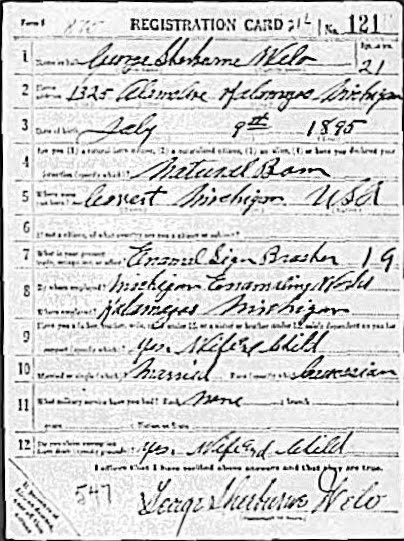 Form 1 REGISTRATION CARD No. 121
Age, in yrs.
1 Name in full George Sherburne Welo 21
2 Home address 1325 Alamo Ave Kalamazoo Michigan
3 Date of birth July 9th 1895
4 Are you (1) a natural born citizen, (2) a naturalized citizen, (3) an alien, (4) or have you declared your
intention (specify which)? Natural Born
5 Where were you born? Covert Michigan USA
6 If not a citizen, of what country are you a citizen or subject?
7 What is your present trade, occupation, or office? Enamel Sign 19
8 By whom employed? Michigan Enameling Works
Where employed? Kalamazoo Michigan
9 Have you a father, mother, wife, child under 12, or a sister or brother under 12, solely dependent on you for
support (specify which)? Yes. Wife & Child
10 Married or single (which)? Married Race (specify which)? Caucasian
11 What military service have you had? Rank None branch
years Nation or State
12 Do you claim exemption from draft (specify grounds)? Yes. Wife & Child
I affirm that I have verified above answers and that they are true.
547
George Sherburne Welo